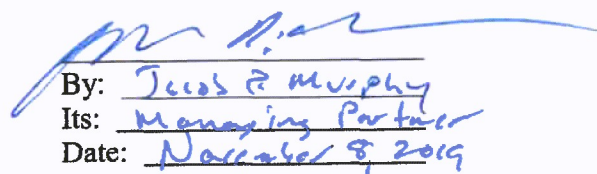 By: Jacob P. Murphy
Its: Managing Partner
Date: November 8, 2019